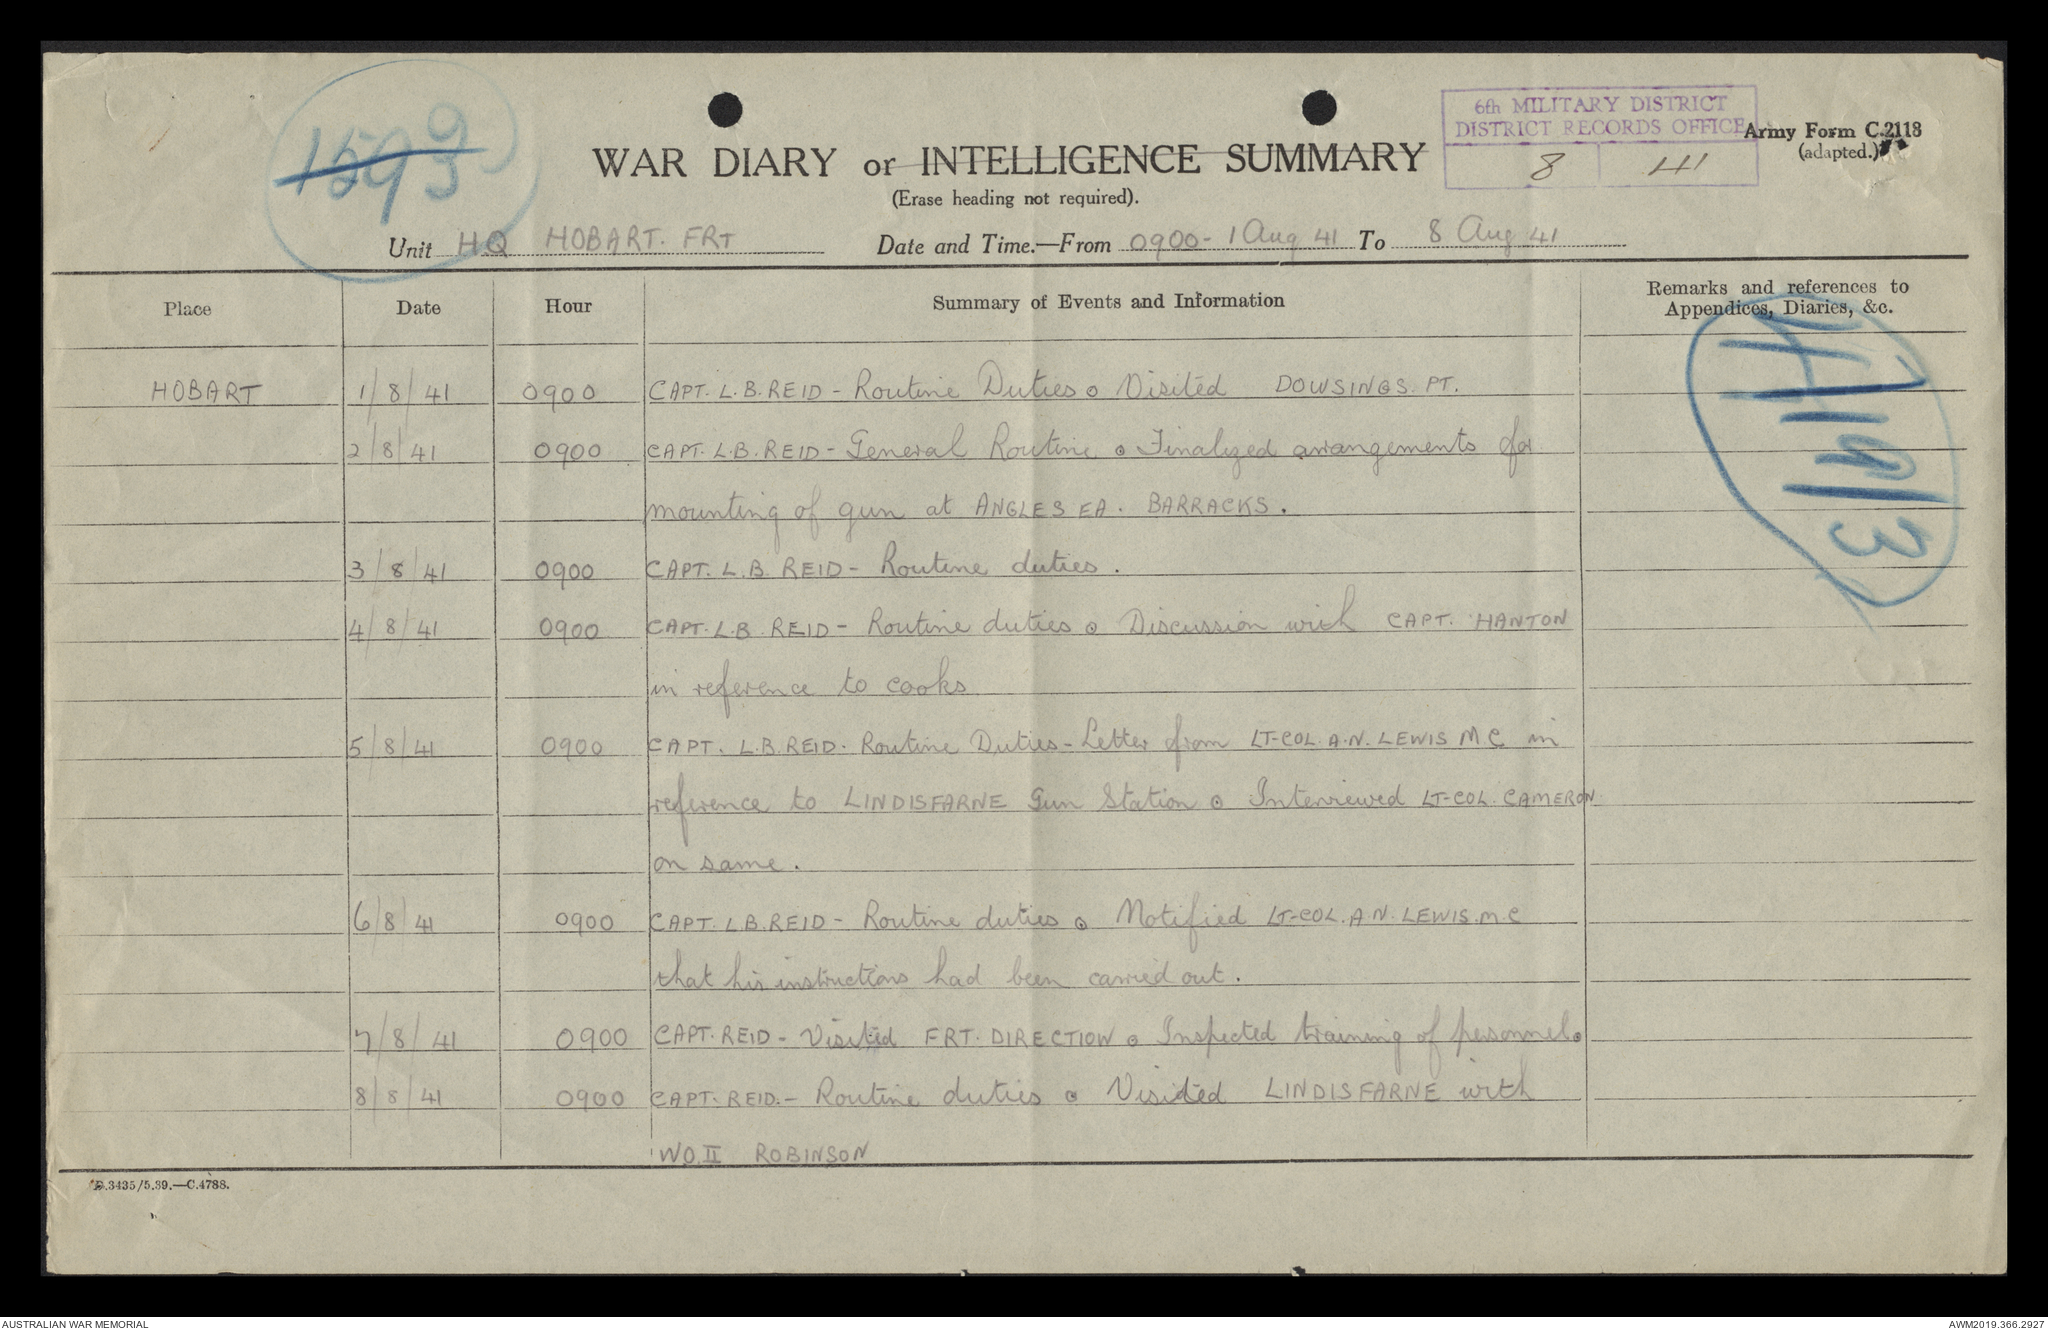 1593 9
6th MILITARY DISTRICT
DISTRICT RECORDS OFFICE
8 41
Army Form C.2118
(adapted.)
WAR DIARY or INTELLIGENCE SUMMARY
(Erase heading not required).
Unit HQ HOBART. FRT Date and Time.—From 0900 - 1 Aug 41 To 8 Aug 41
Place Date Hour Summary of Events and Information Remarks and references to
Appendices, Diaries, &c.
HOBART 1/8/41 0900 CAPT. L.B. REID - Routine Duties. Visited DOWSINGS. PT.
2/8/41 0900 CAPT. L.B. REID - General Routine. Finalized arrangements for
mounting of gun at ANGLESEA. BARRACKS.
3/8/41 0900 CAPT. L.B. REID - Routine duties.
4/8/41 0900 CAPT. L.B. REID - Routine duties. Discussion with CAPT. HANTON
in reference to cooks
5/8/41 0900 CAPT. L.B. REID. Routine Duties - Letter from LT-COL. A.N. LEWIS M.C in
reference to LINDISFARNE Gun Station. Interviewed LT-COL. CAMERON
on same.
6/8/41 0900 CAPT. L.B. REID - Routine duties. Notified LT-COL. A.N. LEWIS. M.C
that his instructions had been carried out.
7/8/41 0900 CAPT. REID - Visited FRT. DIRECTION. Inspected training of personnel.
8/8/41 0900 CAPT. REID. - Routine duties. Visited LINDISFARNE with
W.O. II ROBINSON
D.3435/5.39.—C.4788.
AUSTRALIAN WAR MEMORIAL
AWM2019.366.2927